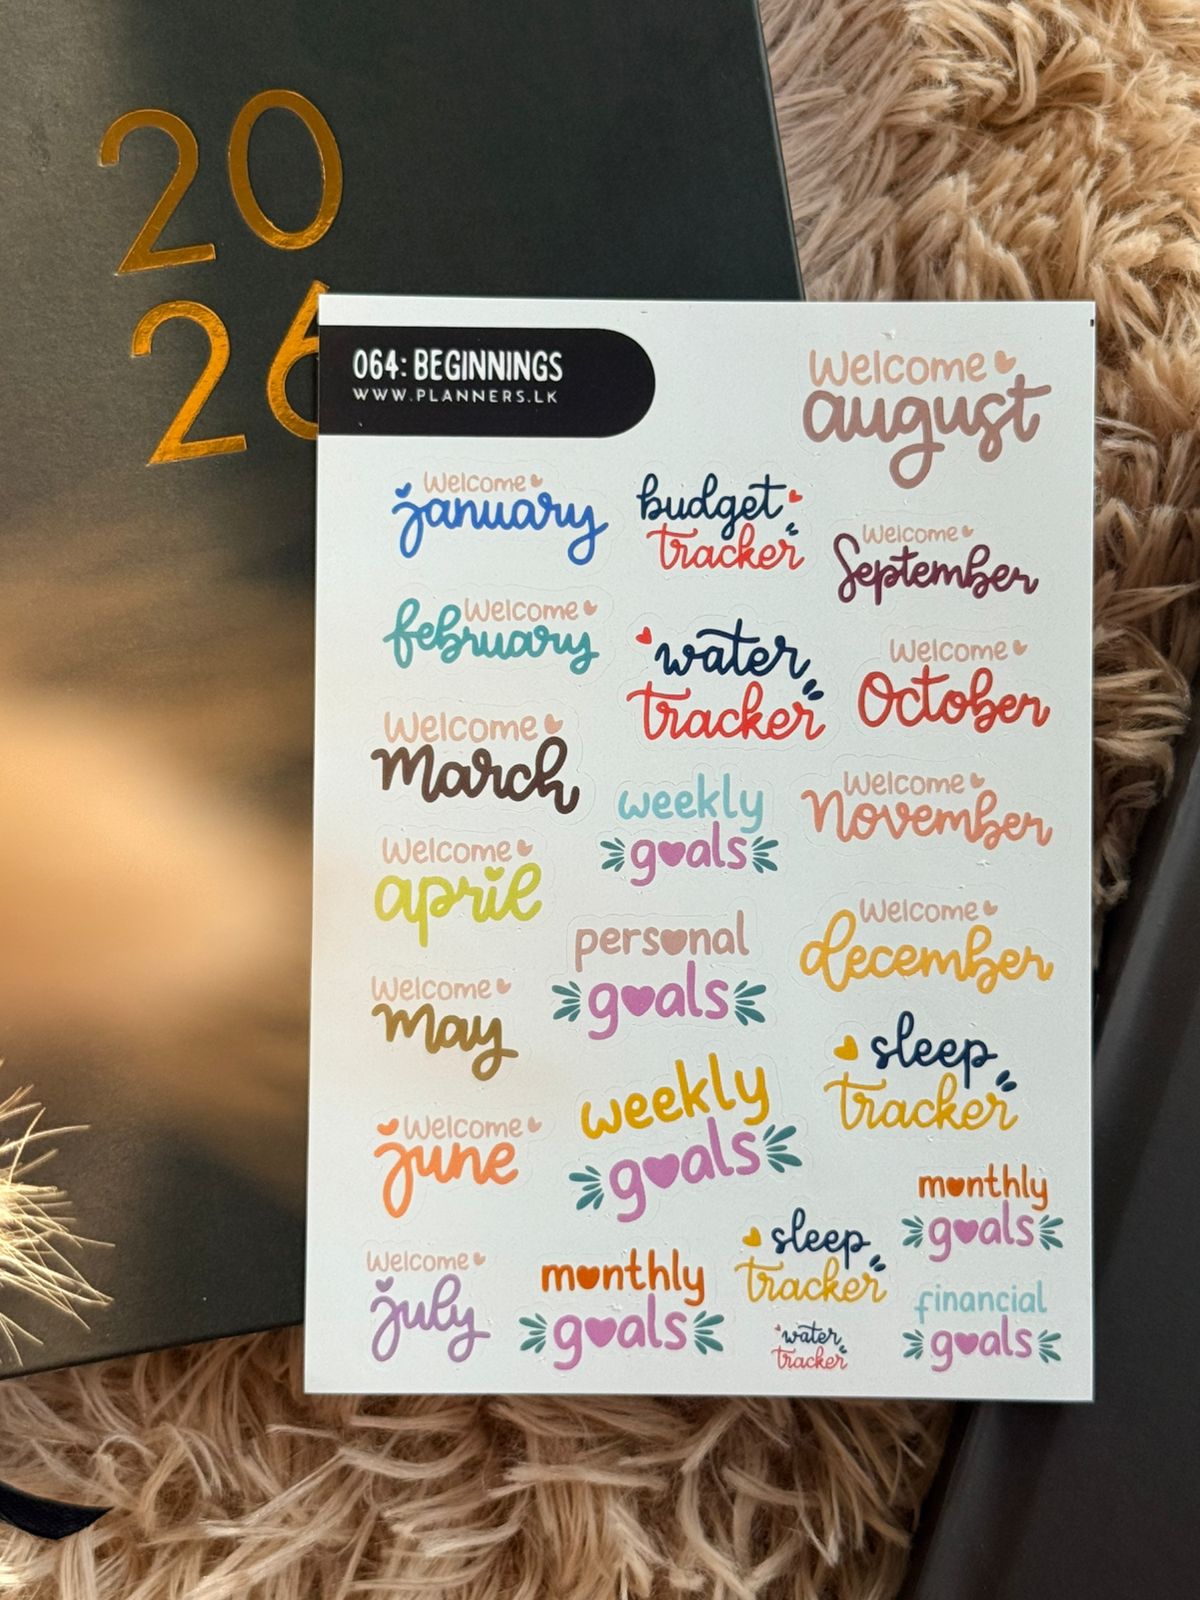 20
26
064: BEGINNINGS
WWW.PLANNERS.LK
Welcome
august
Welcome
january
budget
tracker
Welcome
September
Welcome
february
water
tracker
Welcome
October
Welcome
March
weekly
goals
Welcome
November
Welcome
april
personal
goals
Welcome
december
Welcome
may
weekly
goals
sleep
tracker
Welcome
june
monthly
goals
Welcome
july
monthly
goals
sleep
tracker
water
tracker
financial
goals